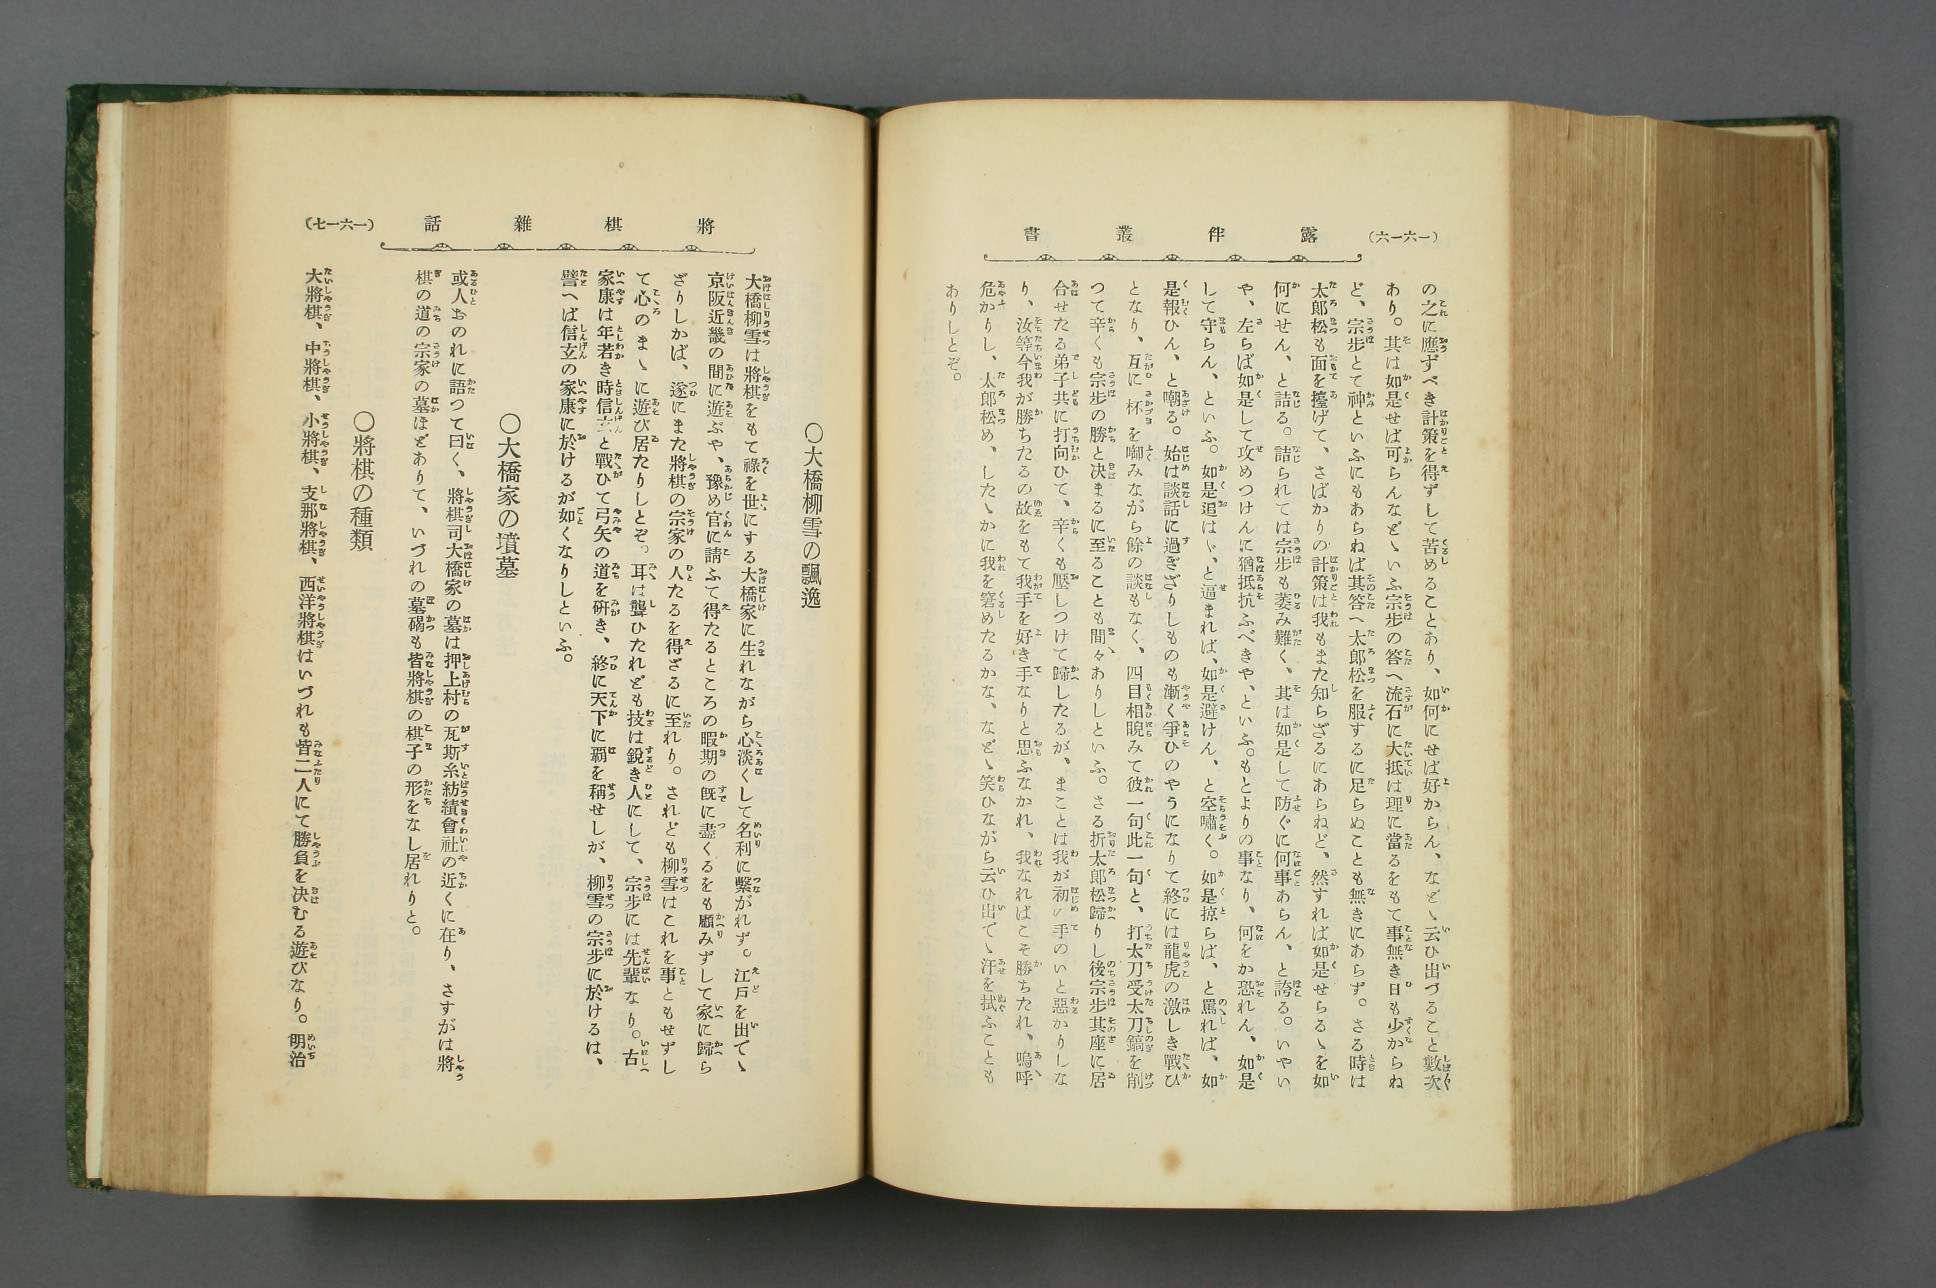 (一六一六)
露伴叢書
の之に應ずべき計策を得ずして苦めることあり、如何にせば好からん、などゝ云ひ出づること數次
あり。其は如是せば可らんなどゝいふ宗歩の答へ流石に大抵は理に當るをもて事無き日も少からね
ど、宗歩とて神といふにもあらねば其答へ太郎松を服するに足らぬことも無きにあらず。さる時は
太郎松も面を擡げて、さばかりの計策は我もまた知らざるにあらねど、然すれば如是せらるゝを如
何にせん、と詰る。詰られては宗歩も萎み難く、其は如是して防ぐに何事あらん、と誇る。いやい
や、左らば如是して攻めつけんに猶抵抗ふべきや、といふ。もとよりの事なり、何をか恐れん、如是
して守らん、といふ。如是追はゞ、と逼まれば、如是避けん、と空嘯く。如是掠らば、と罵れば、如
是報ひん、と嘲る。始は談話に過ぎざりしものも漸く爭ひのやうになりて終には龍虎の激しき戰ひ
となり、互に杯を啣みながら餘の談もなく、四目相睨みて彼一句此一句と、打太刀受太刀鎬を削
つて辛くも宗歩の勝と决まるに至ることも間々ありしといふ。さる折太郎松歸りし後宗歩其座に居
合せたる弟子共に打向ひて、辛くも壓しつけて歸したるが、まことは我が初ノ手のいと惡かりしな
り、汝等今我が勝ちたるの故をもて我手を好き手なりと思ふなかれ、我なればこそ勝ちたれ、嗚呼
危かりし、太郎松め、したゝかに我を窘めたるかな、などゝ笑ひながら云ひ出でゝ汗を拭ふことも
ありしとぞ。
將棋雜話
(一六一七)
〇大橋柳雪の飄逸
大橋柳雪は將棋をもて祿を世にする大橋家に生れながら心淡くして名利に繫がれず。江戸を出でゝ
京阪近畿の間に遊ぶや、豫め官に請ふて得たるところの暇期の既に盡くるをも顧みずして家に歸ら
ざりしかば、遂にまた將棋の宗家の人たるを得ざるに至れり。されども柳雪はこれを事ともせずし
て心のまゝに遊び居たりしとぞ。耳は聾ひたれども技は銳き人にして、宗歩には先輩なり。古
家康は年若き時信玄と戰ひて弓矢の道を硏き、終に天下に覇を稱せしが、柳雪の宗歩に於けるは、
譬へば信玄の家康に於けるが如くなりしといふ。
〇大橋家の墳墓
或人おのれに語つて曰く、將棋司大橋家の墓は押上村の瓦斯糸紡績會社の近くに在り、さすがは將
棋の道の宗家の墓ほどありて、いづれの墓碣も皆將棋の棋子の形をなし居れりと。
〇將棋の種類
大將棋、中將棋、小將棋、支那將棋、西洋將棋はいづれも皆二人にて勝負を决むる遊びなり。明治